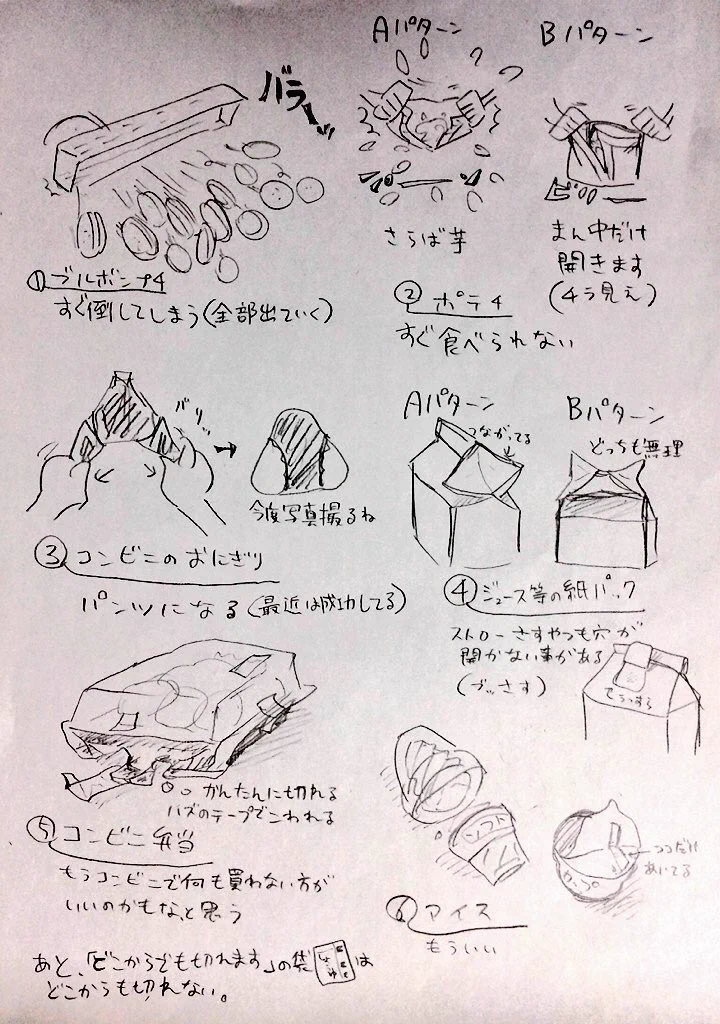 バラー
① ブルボンプチ
すぐ倒してしまう(全部出ていく)
Aパターン
さらば芋
Bパターン
まん中だけ
開きます
(チラ見え)
② ポテチ
すぐ食べられない
バリッ
今度写真撮るね
③ コンビニのおにぎり
パンツになる(最近は成功してる)
Aパターン
つながってる
Bパターン
どっちも無理
④ ジュース等の紙パック
ストローさすやつも穴が
開かない事がある
(ブッさす)
かんたんに切れる
ハズのテープでこわれる
⑤ コンビニ弁当
もうコンビニで何も買わない方が
いいのかもなと思う
ソフト
ココだけ
あいてる
⑥ アイス
もういい
あと、「どこからでも切れます」の袋は
どこからも切れない。